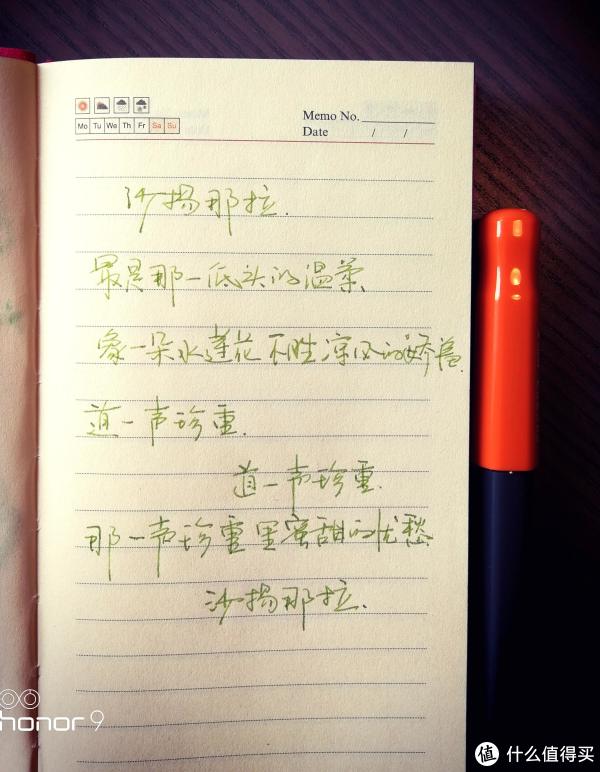 Mo Tu We Th Fr Sa Su
Memo No.
Date / /
沙扬那拉.
最是那一低头的温柔
象一朵水莲花不胜凉风的娇羞.
道一声珍重.
道一声珍重.
那一声珍重里蜜甜的忧愁
沙扬那拉.
honor 9
值 什么值得买